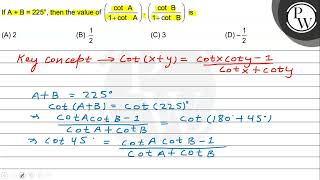 If A + B = 225°, then the value of (cot A / 1+cot A) · (cot B / 1+cot B) is
(A) 2 (B) 1/2 (C) 3 (D) -1/2
PW
Key concept → Cot (x+y) = cotx coty - 1 / cotx + coty
A + B = 225°
cot (A+B) = cot (225)°
⇒ cotA cotB - 1 / cotA + cotB = cot (180° + 45°)
⇒ cot 45° = cotA cotB - 1 / cotA + cotB